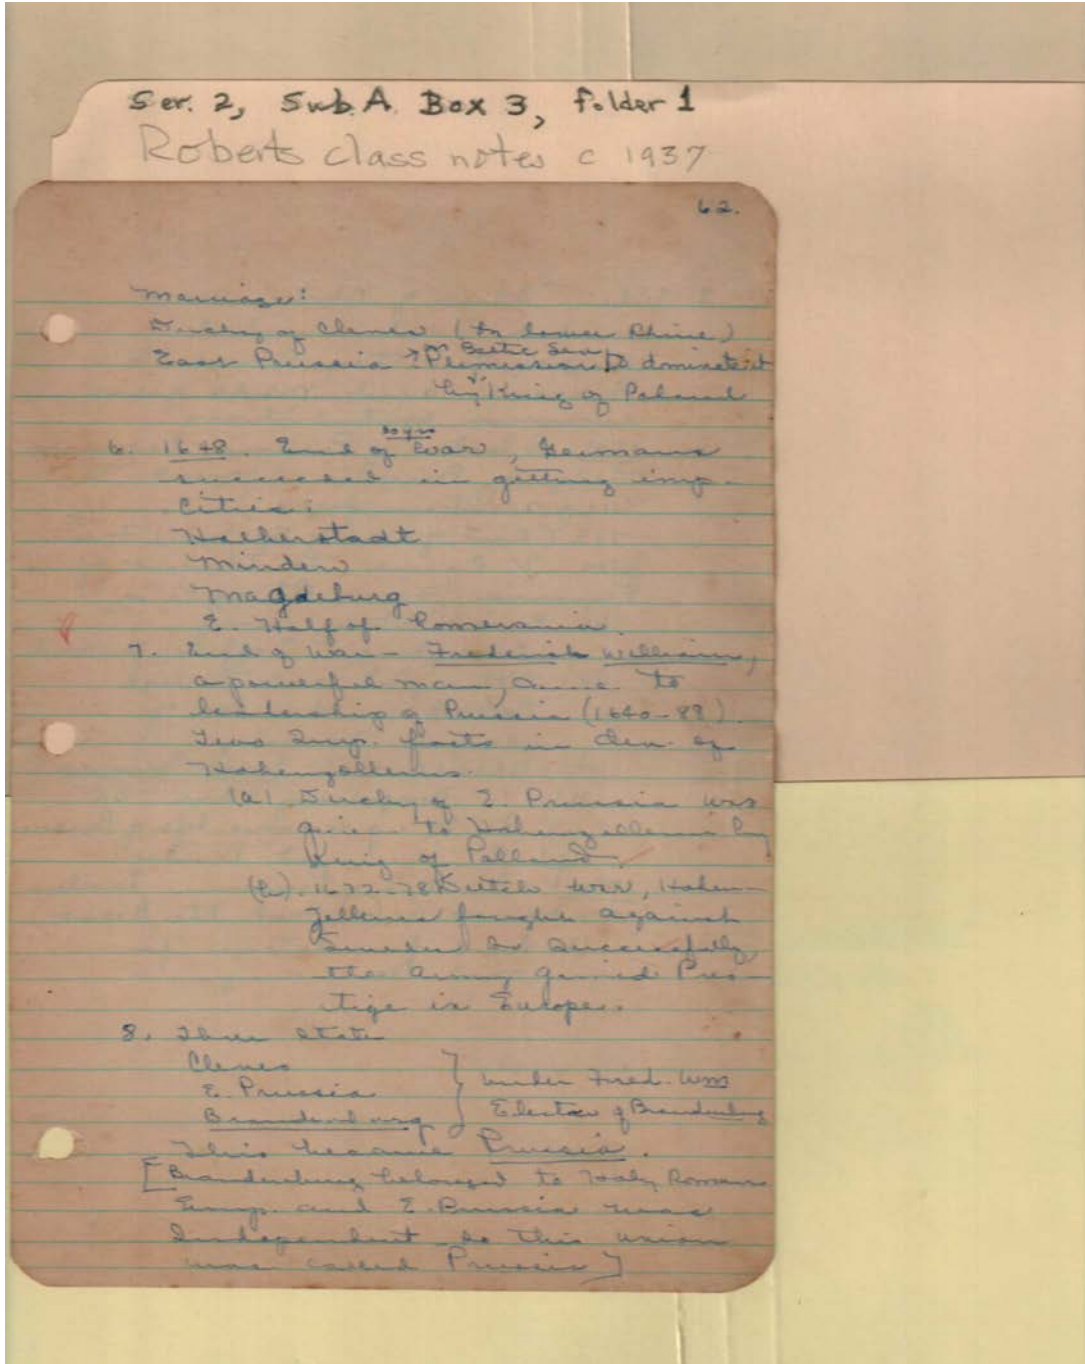 Ser. 2, Sub. A. Box 3, folder 1
Roberts class notes c 1937
62.
Marriage:
Duchy of Cleves (In lower Rhine)
on Baltic Sea
East Prussia → dominated
by King of Poland
30 yrs
6. 1648. End of War, Germans
succeeded in getting imp.
Cities:
Halberstadt
Minden
Magdeburg
E. Half of Pomerania.
7. End of War - Frederick William,
a powerful man, came to
leadership of Prussia (1640-88).
Two Imp. facts in dev. of
Hohenzollerns.
(a) Duchy of E. Prussia was
given to Hohenzollerns by
King of Polland.
(b). 1672-78 Dutch War, Hohen-
zollerns fought against
Sweden so successfully
the army gained Pres-
tige in Europe.
8. Three States
Cleves
E. Prussia
Brandenburg
} under Fred. Wm
Elector of Brandenburg
This became Prussia.
[Brandenburg belonged to Holy Roman
Emp. and E. Prussia was
Independent so this union
was called Prussia]